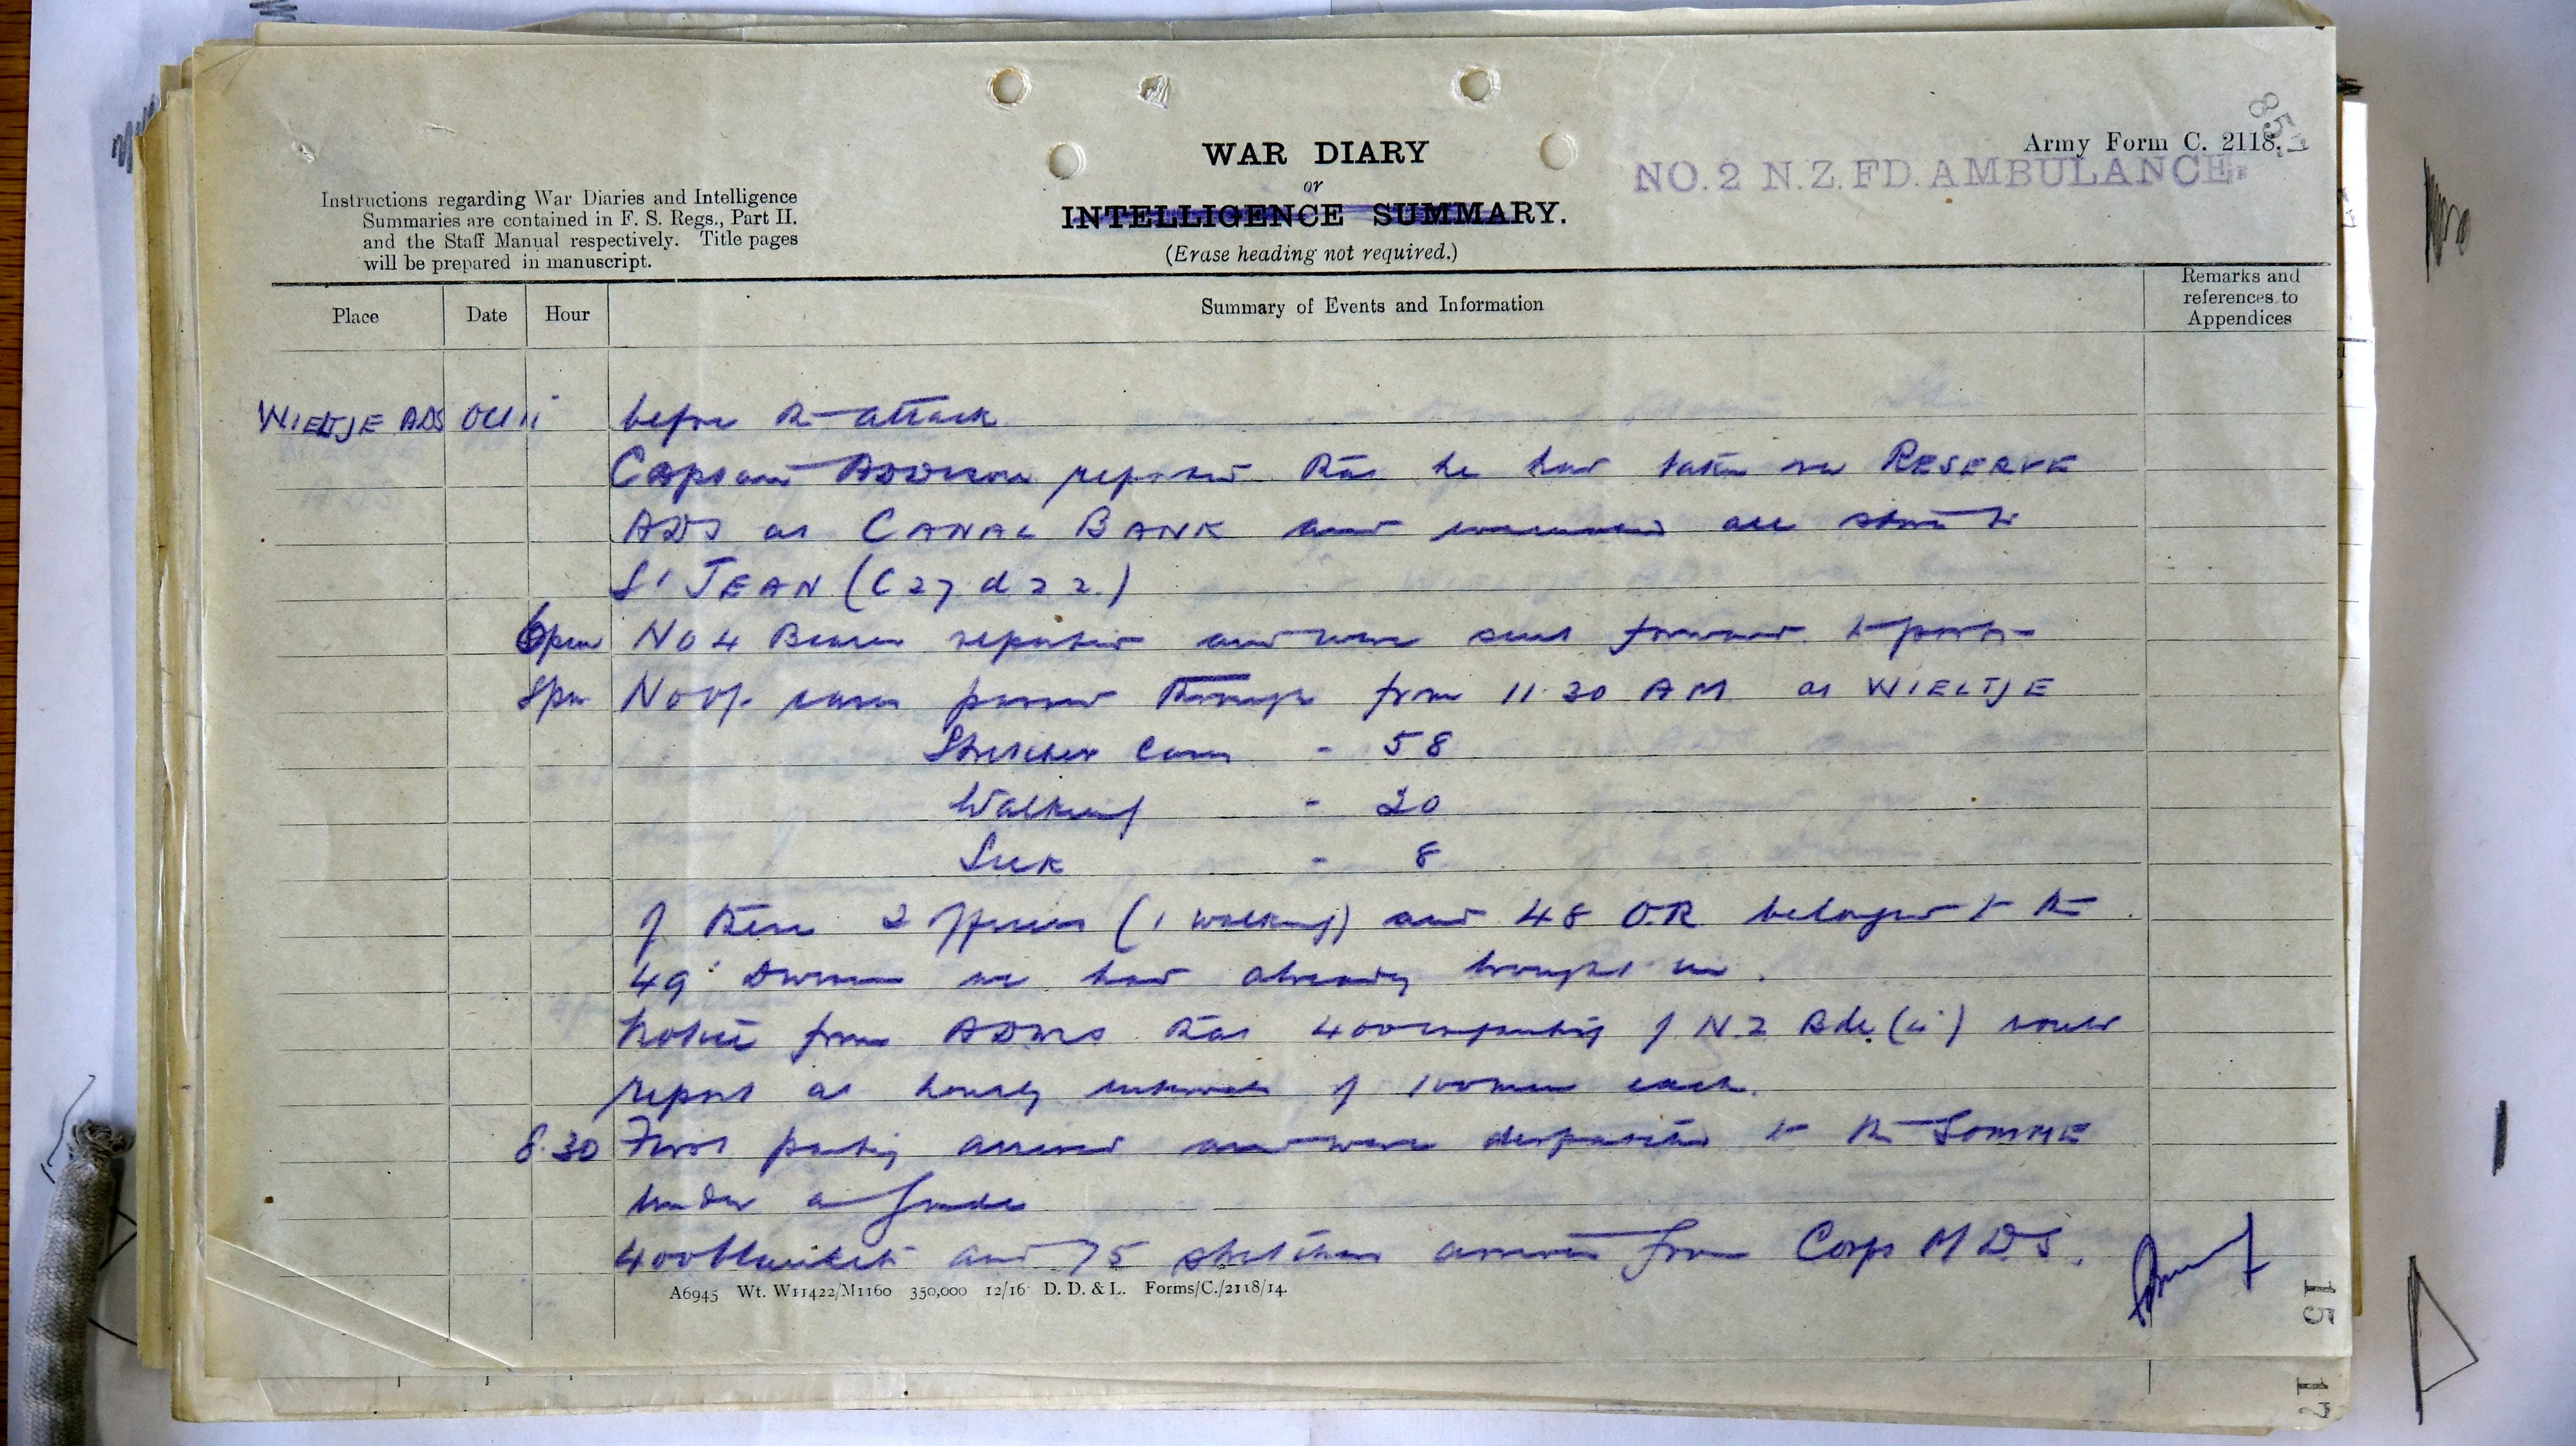 857
Army Form C. 2118.
WAR DIARY
NO. 2 N.Z. FD. AMBULANCE
or
INTELLIGENCE SUMMARY.
(Erase heading not required.)
Instructions regarding War Diaries and Intelligence
Summaries are contained in F. S. Regs., Part II.
and the Staff Manual respectively. Title pages
will be prepared in manuscript.
Place Date Hour Summary of Events and Information Remarks and references to Appendices
WIELTJE ADS Oct 11 before the attack
Captain Addison reported that he had taken over RESERVE
ADS at CANAL BANK and all stores to
St JEAN (C 27 d 2 2.)
6pm No 4 Bearers reported and were sent forward to posts
8pm No of cases passed through from 11.30 AM at WIELTJE
Stretcher Cases - 58
Walking - 20
Sick - 8
Of these 2 officers (1 walking) and 48 O.R belonged to the
49 Division we had already brought in.
Notice from ADMS that 400 of N.Z Bde (4) would
report at hourly intervals of 100 men each.
8.30 First party arrived and were despatched to the SOMME
under a guide
400 blankets and 75 stretchers arrived from Corps M D S.
A6945 Wt. W11422/M1160 350,000 12/16 D. D. & L. Forms/C./2118/14.
15